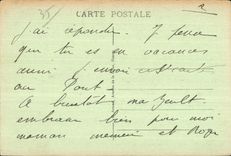 35
CARTE POSTALE
J'ai répondu. Je pense
que tu es en vacances
aussi j'envoie cette carte
au Pont-
A bientôt ma
embrasse bien pour moi
maman memere et Roger